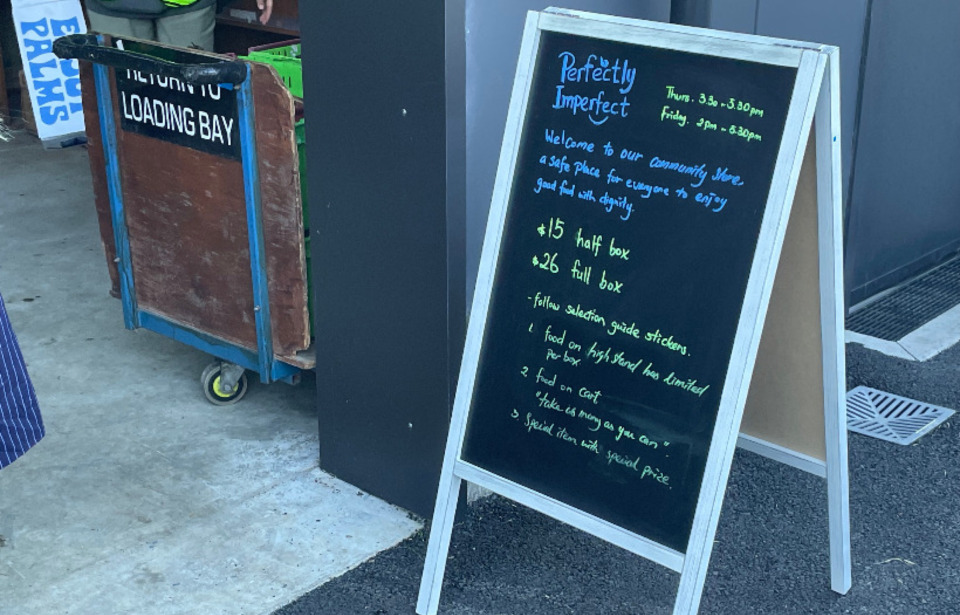 PALMS
RETURN TO
LOADING BAY
Perfectly
Imperfect
Thurs. 3.30 - 5.30pm
Friday. 2pm - 5.30pm
Welcome to our community store,
a safe place for everyone to enjoy
good food with dignity.
$15 half box
$26 full box
- follow selection guide stickers.
1. food on high stand has limited
per box
2. food on cart
"take as many as you can".
3. Special item with special prize.